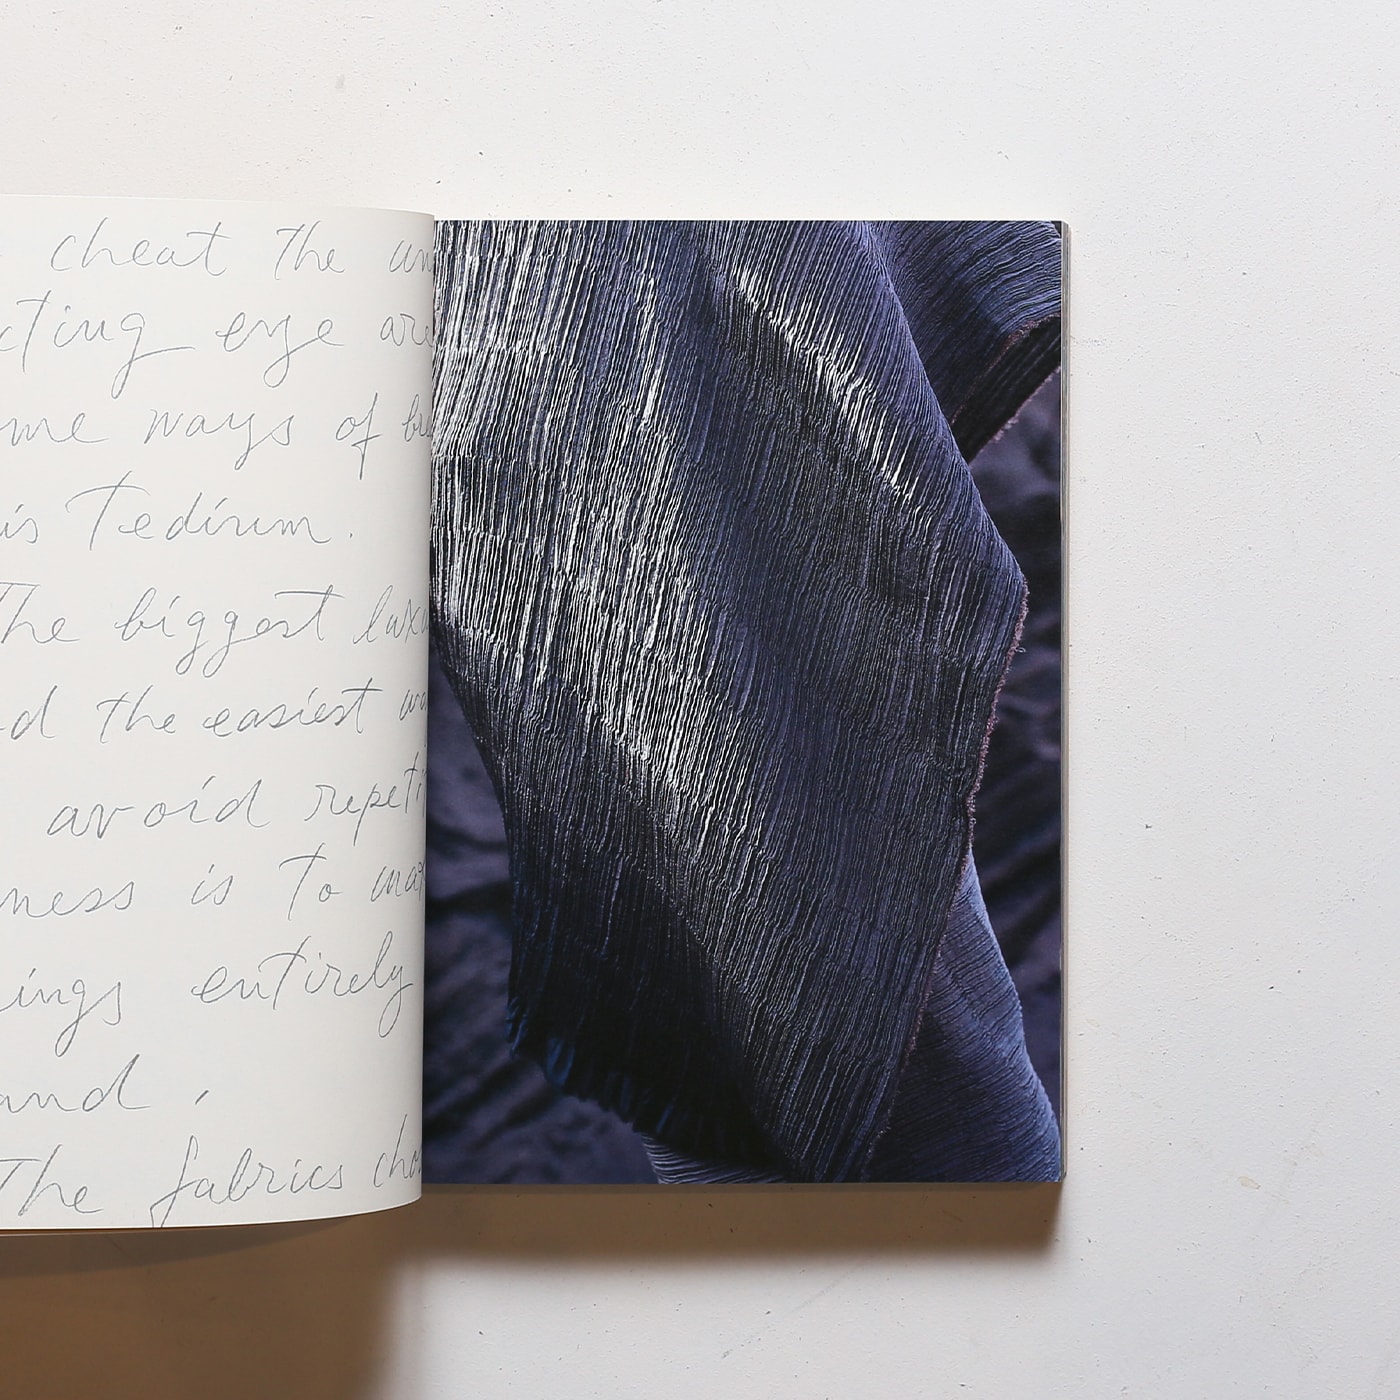 cheat the un
cting eye are
me ways of bre
is tedium.
The biggest lux
d the easiest wa
avoid repeti
ness is to ma
ings entirely
and,
The fabrics cho